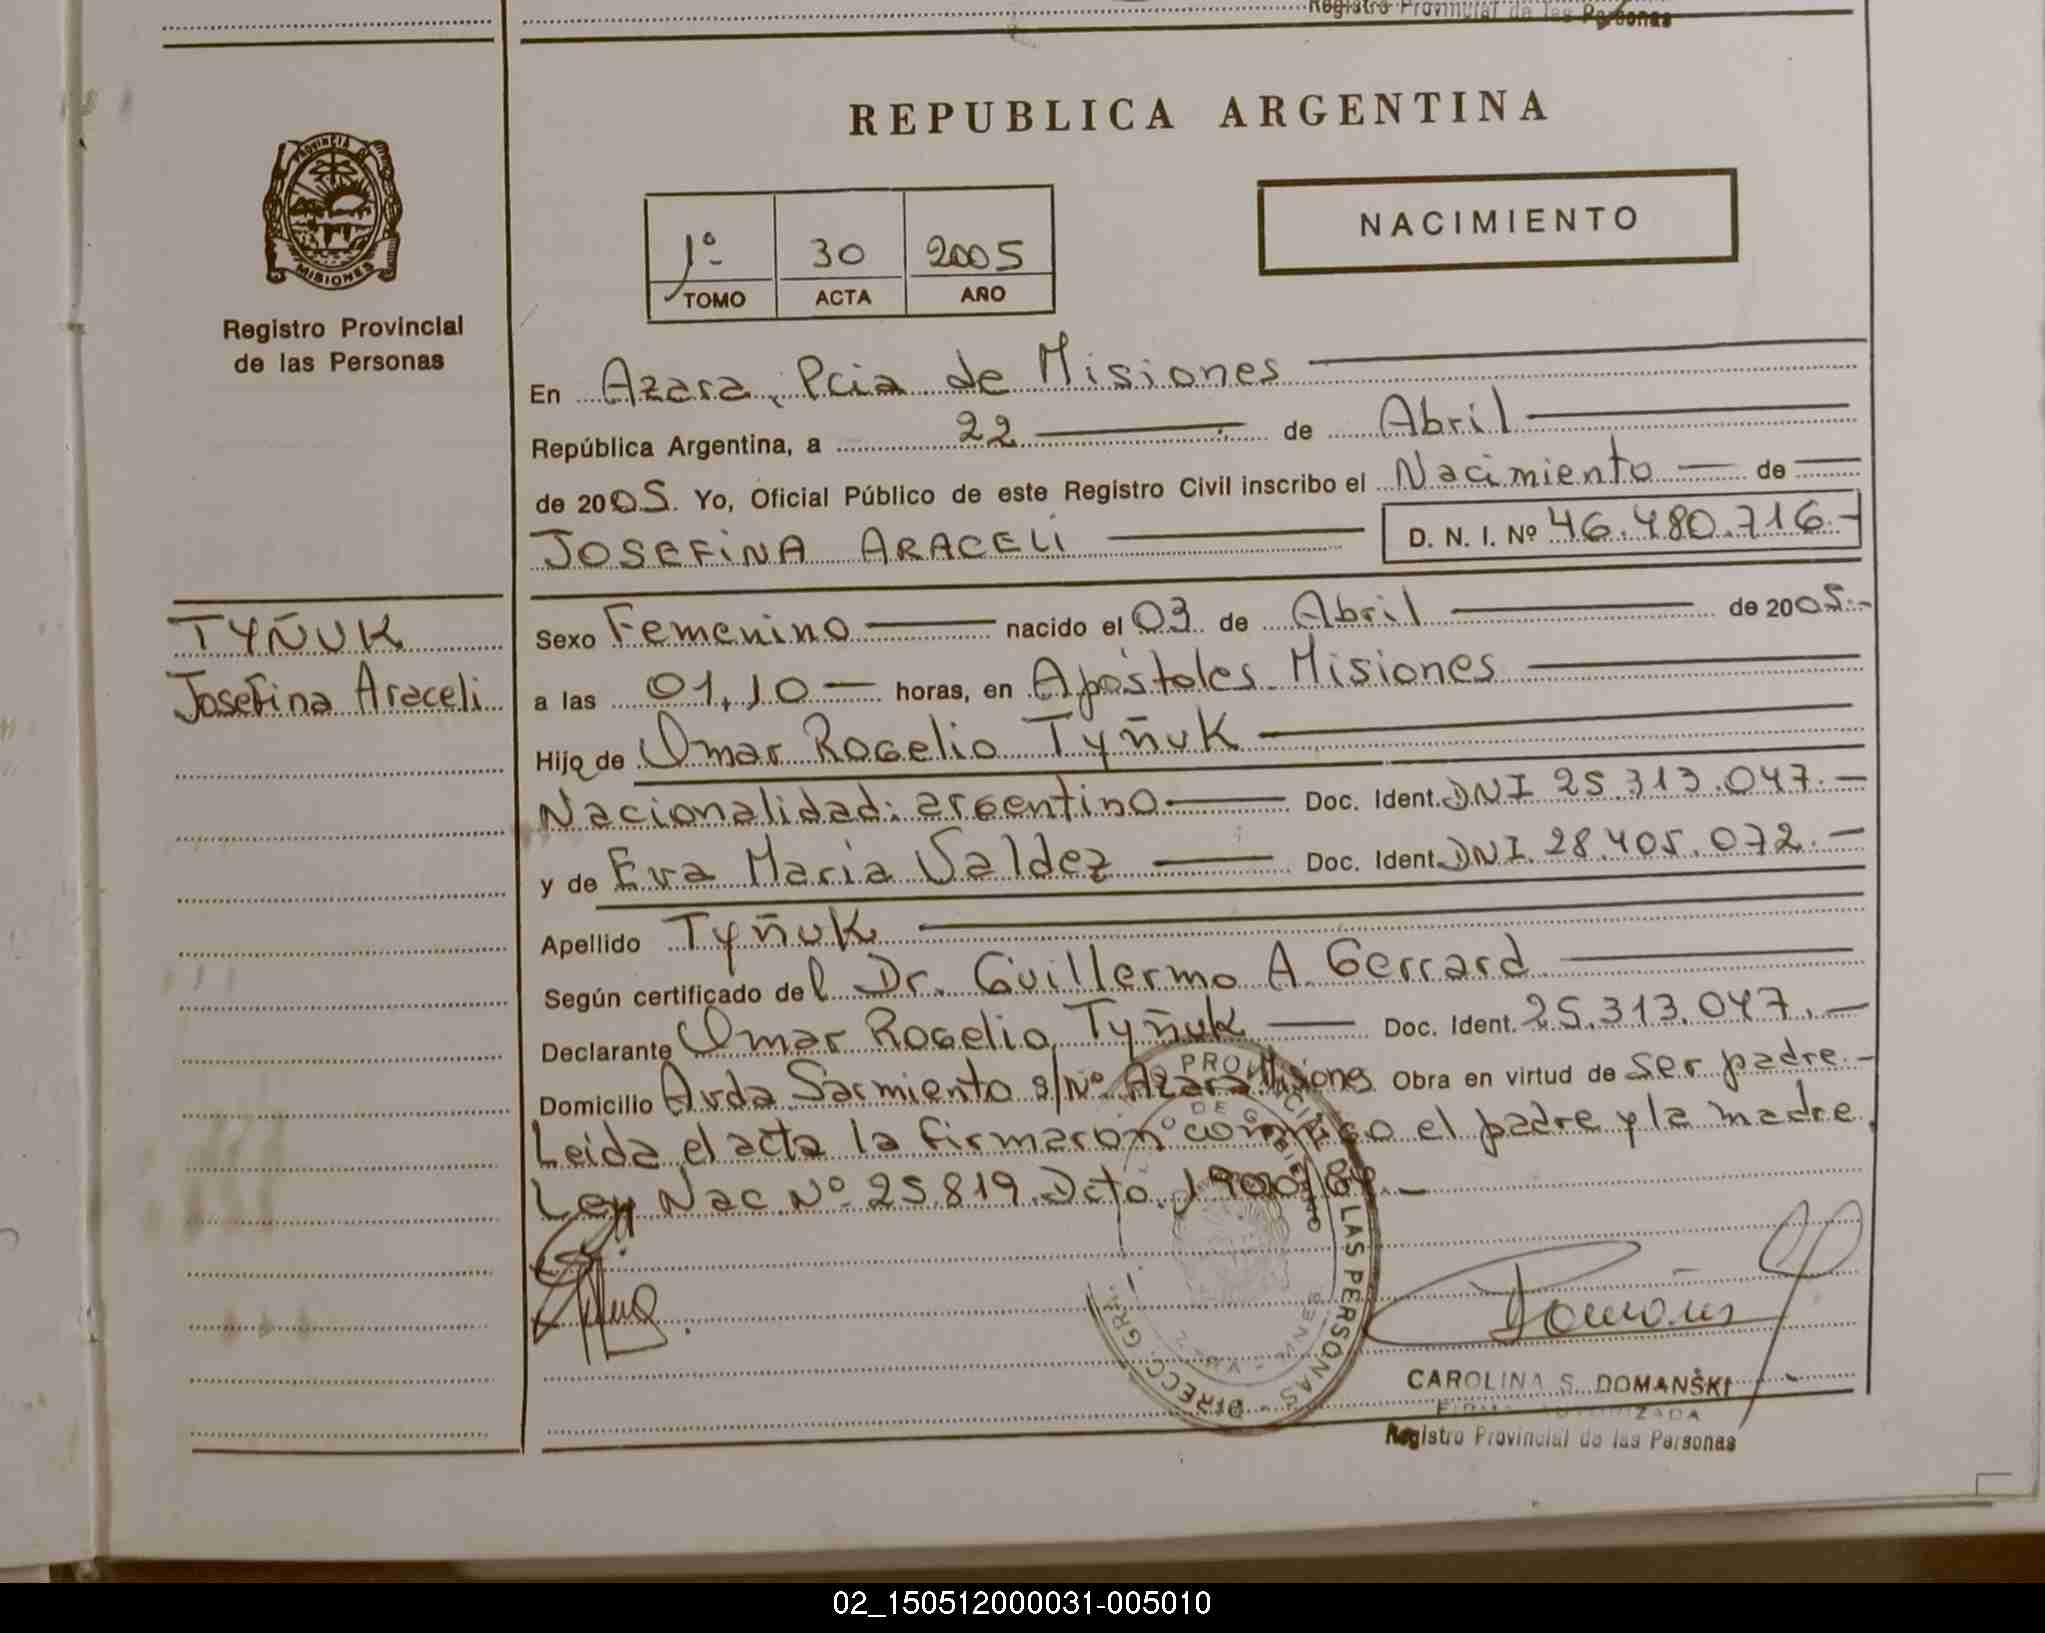 Registro Provincial de las Personas
REPUBLICA ARGENTINA
PROVINCIA DE
MISIONES
Registro Provincial
de las Personas
1º 30 2005
TOMO ACTA AÑO
NACIMIENTO
En Azara, Pcia de Misiones
República Argentina, a 22 de Abril
de 2005. Yo, Oficial Público de este Registro Civil inscribo el Nacimiento de
JOSEFINA ARACELI D. N. I. Nº 46.480.716.-
TYÑUK
Josefina Araceli
Sexo Femenino nacido el 03 de Abril de 2005.-
a las 01,10 horas, en Apóstoles Misiones
Hijo de Omar Rogelio Tyñuk
Nacionalidad: argentino Doc. Ident. DNI 25.313.047.-
y de Eva Maria Valdez Doc. Ident. DNI. 28.405.072.-
Apellido Tyñuk
Según certificado del Dr. Guillermo A. Gerrard
Declarante Omar Rogelio Tyñuk Doc. Ident. 25.313.047.-
Domicilio Avda Sarmiento s/Nº Azara Misiones Obra en virtud de ser padre.-
Leida el acta la firmaron conmigo el padre y la madre.
Ley Nac Nº 25.819. Dcto. 1900/04.-
DIRECC. GRAL. PROVINCIAL DE LAS PERSONAS
CAROLINA S. DOMANSKI
FIRMA AUTORIZADA
Registro Provincial de las Personas
02_150512000031-005010